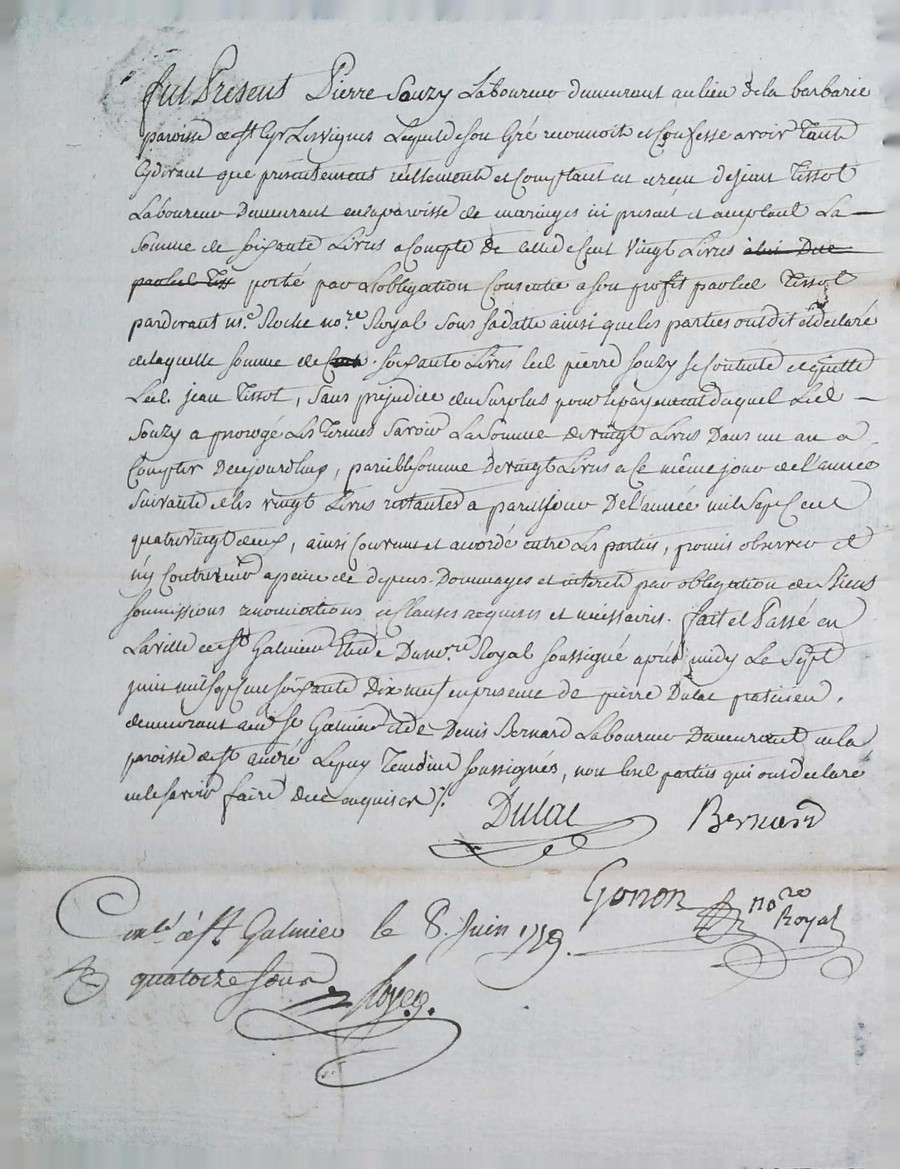 fut Present Pierre Souzy Laboureur demeurant au lieu de la barbarie
paroisse de St Cyr Les Vignes Lequel de son Gré reconnoit et Confesse avoir tant
Cydevant que presentement reellement et Comptant eu et recu de jean Tissot
Laboureur Demeurant en la paroisse de maringes ici present et acceptant La
Somme de soixante Livres a Compte de celle de Cent Vingt Livres a lui Due
par led. Tiss porté par L'obligation Consentie a son profit par led Tissot
pardevant me. Roche nore. Royal Sous sa datte ainsi que les parties ont dit et declaré
de laquelle somme de Cent soixante Livres led pierre souzy se Contente et quitte
Led. jean Tissot, sans prejudice du Surplus pour le payement duquel Led
Souzy a prorogé Les Termes savoir La Somme de vingt Livres Dans un an a
Compter De cejourdhuy, pareille somme De vingt Livres a Ce même jour de l'année
Suivante et les vingt Livres restantes a pareil jour De l'année mil Sept Cent
quatrevingt deux, ainsi Convenu et accordé entre Les parties, promis observer et
n'y Contrevenir a peine de depens Dommages et interets par obligation de Biens
soumissions renonciations et Clauses requises et necessaires. fait et Passé en
La ville de St Galmier Etude Du nore. Royal soussigné après midy Le Sept
juin mil sept cent soixante Dix neuf en presence de pierre Dulac praticien
demeurant aud. St Galmier et de Denis Bernard Laboureur Demeurant en la
paroisse de St andré Le puy Temoins soussignés, non lesd. parties qui ont declaré
ne le savoir faire De ce enquises
Dulac Bernard
Gonon nore Royal
Conlé à St Galmier le 8. Juin 1779.
R quatorze sous